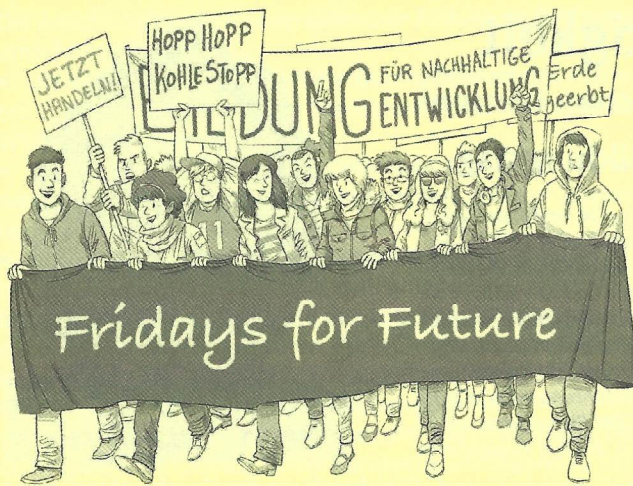 JETZT
HANDELN!
HOPP HOPP
KOHLE STOPP
FÜR NACHHALTIGE
ENTWICKLUNG
Erde
geerbt
Fridays for Future